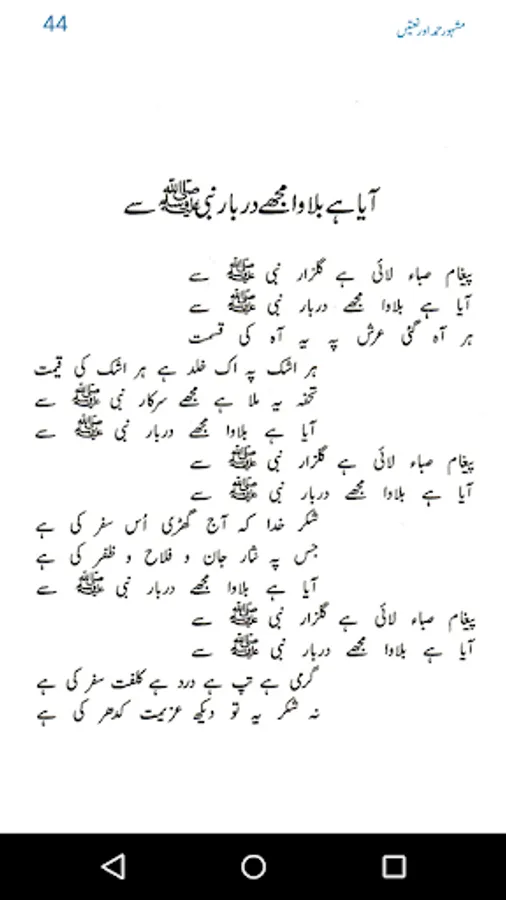 44
مشہور حمد اور نعتیں
آیا ہے بلاوا مجھے دربار نبی ﷺ سے
پیغام صباء لائی ہے گلزار نبی ﷺ سے
آیا ہے بلاوا مجھے دربار نبی ﷺ سے
ہر آہ گئی عرش پہ یہ آہ کی قسمت
ہر اشک پہ اک خلد ہے ہر اشک کی قیمت
تحفہ یہ ملا ہے مجھے سرکار نبی ﷺ سے
آیا ہے بلاوا مجھے دربار نبی ﷺ سے
پیغام صباء لائی ہے گلزار نبی ﷺ سے
آیا ہے بلاوا مجھے دربار نبی ﷺ سے
شکر خدا کہ آج گھڑی اُس سفر کی ہے
جس پہ نثار جان و فلاح و ظفر کی ہے
آیا ہے بلاوا مجھے دربار نبی ﷺ سے
پیغام صباء لائی ہے گلزار نبی ﷺ سے
آیا ہے بلاوا مجھے دربار نبی ﷺ سے
گرمی ہے تپ ہے درد ہے کلفت سفر کی ہے
نہ شکر یہ تو دیکھ عزیمت کدھر کی ہے